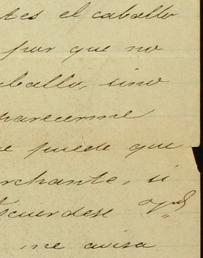 es el caballo
por que no
caballo, sino
parecerme
e puede que
rchante, si
Acuerdese
me avisa